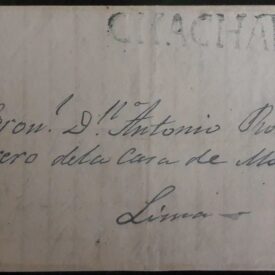 CHACHA
Cron.l D.n Antonio Ro
ero de la Casa de Mo
Lima